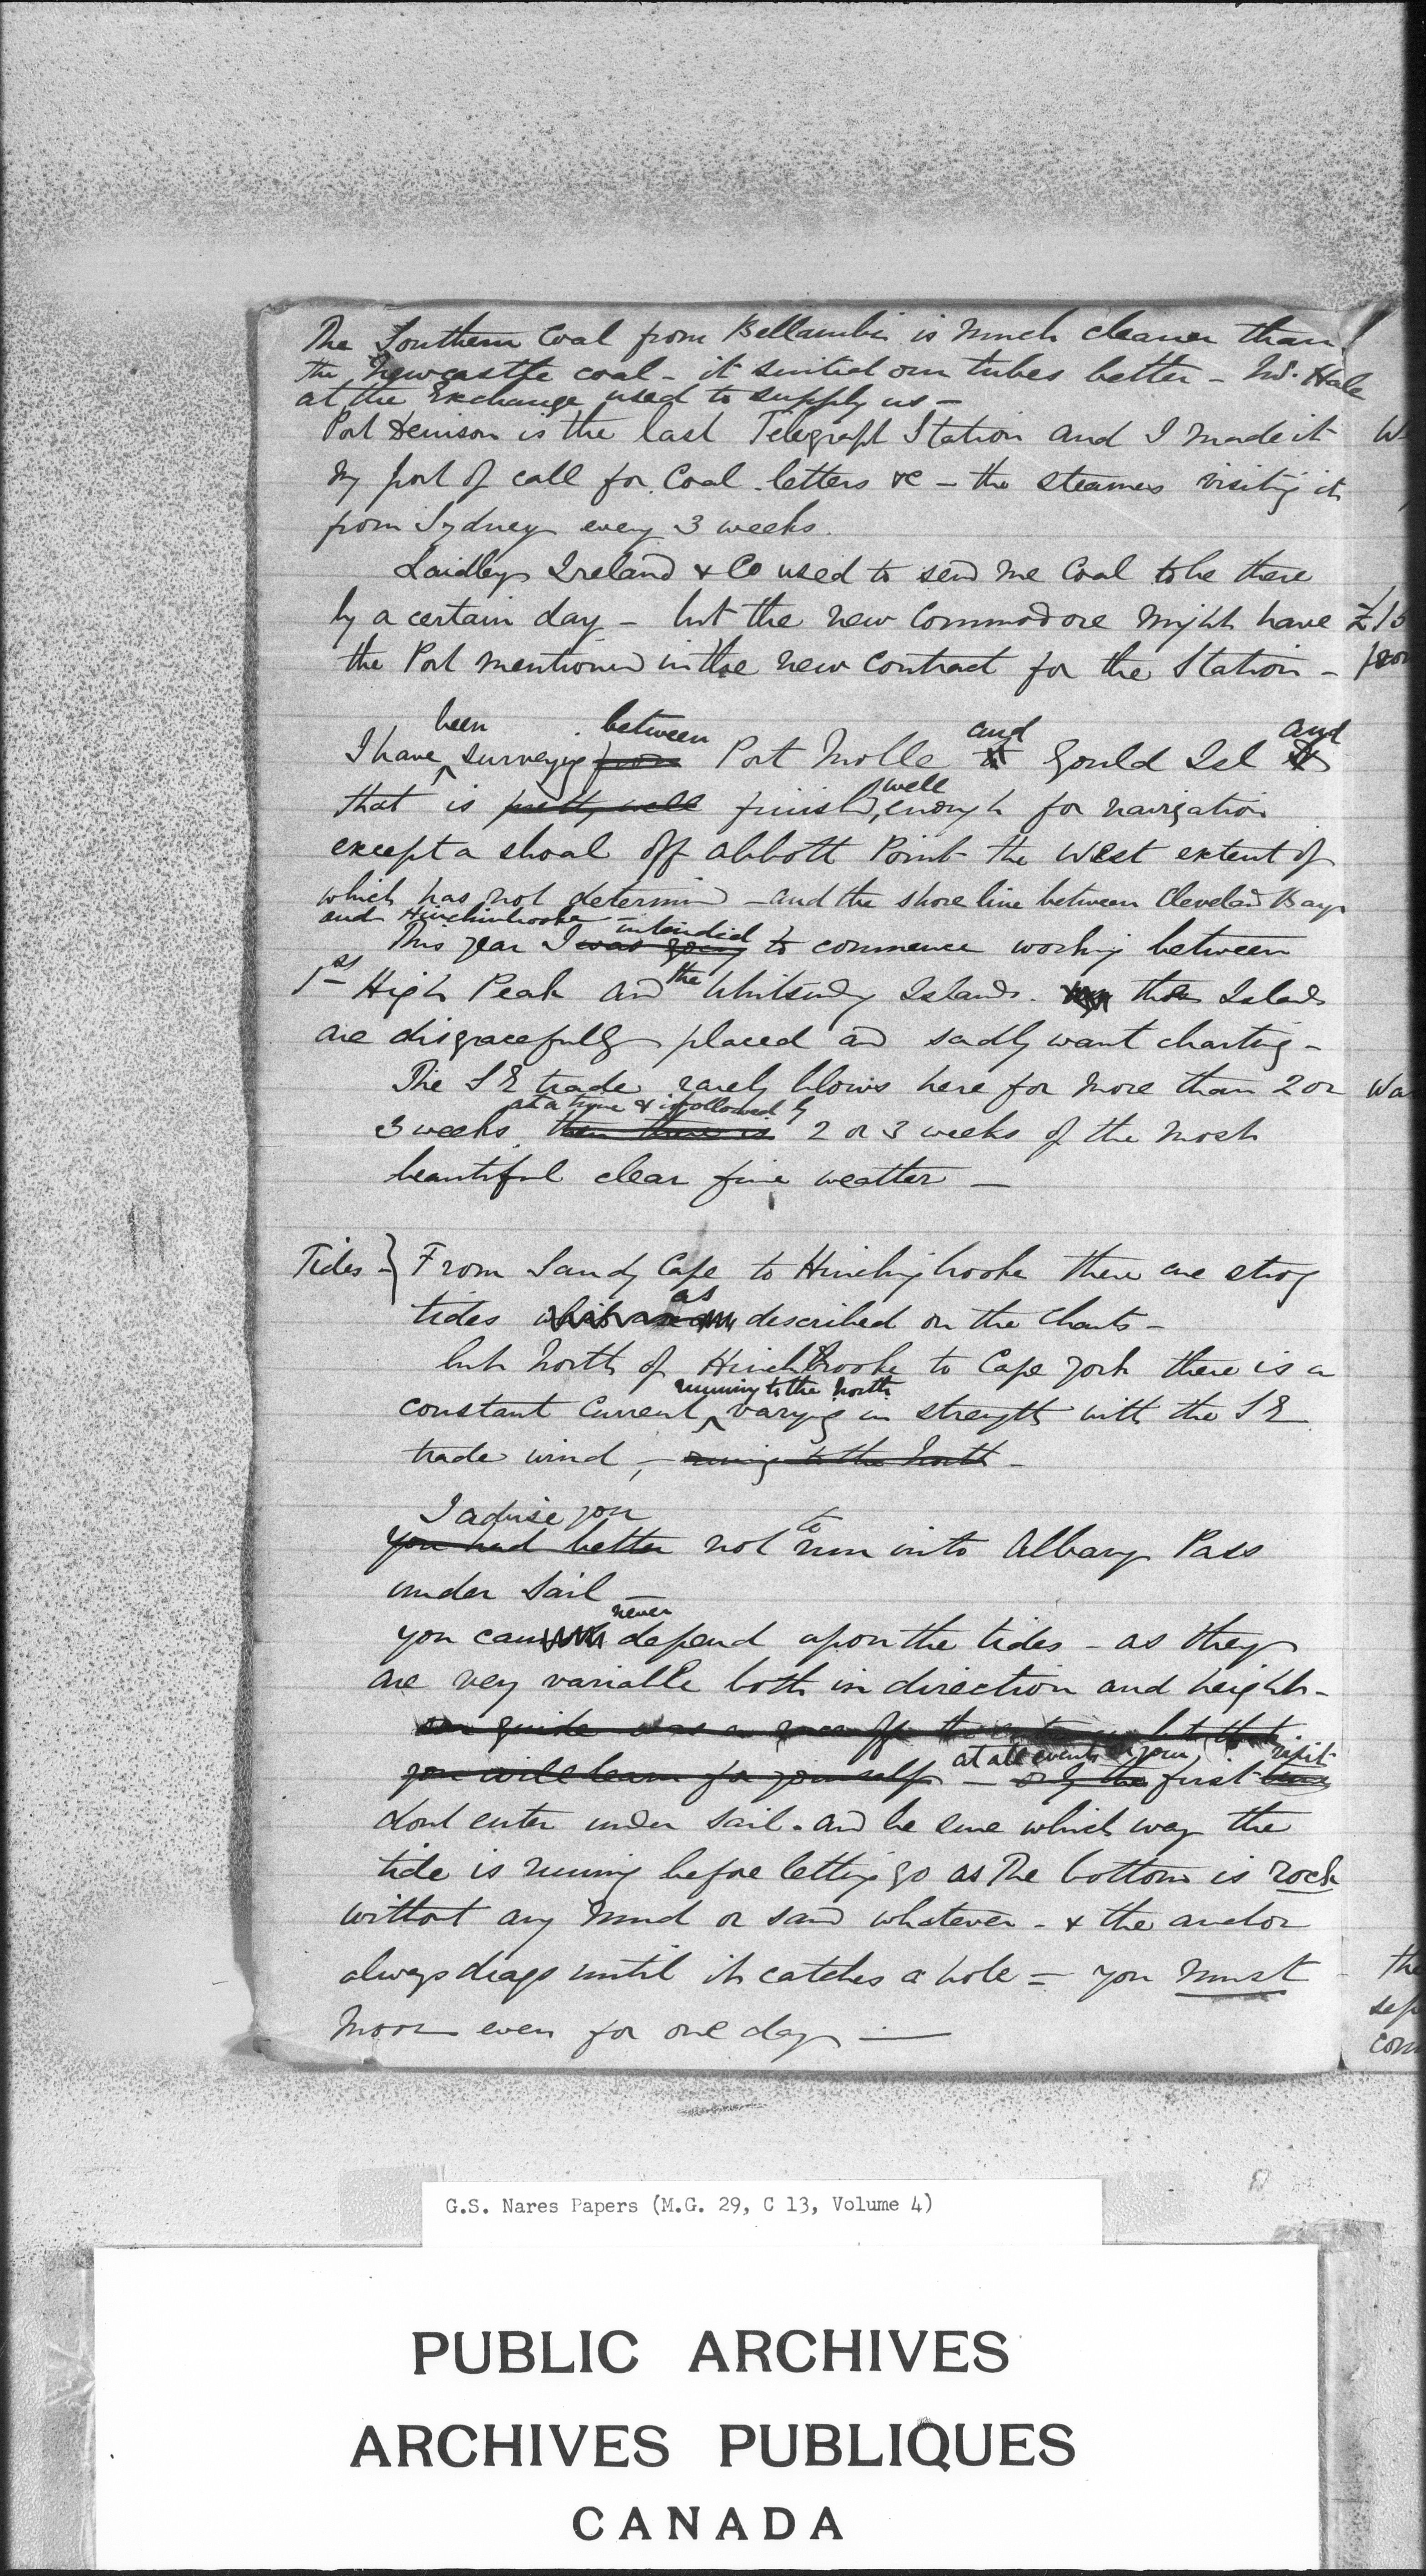 The Southern Coal from Bellambi is much cleaner than
the Newcastle coal - it suited our tubes better - Mr. Hale
at the Exchange used to supply us -
Port Denison is the last Telegraph Station and I made it
my port of call for Coal letters &c - the steamers visiting it
from Sydney every 3 weeks.
Laidley Ireland & Co used to send me Coal to be there
by a certain day - but the new Commodore might have
the Port mentioned in the new contract for the Station -
been between and and
I have surveying from Port Molle to Gould Isl &
well
that is pretty well finished, enough for navigation
except a shoal off Abbott Point the West extent of
which has not determined - and the shore line between Cleveland Bay
and Hinchinbrooke - intended
This year I was going to commence working between
the
1st High Peak and Whitsunday Islands. those Islands
are disgracefully placed and sadly want charting -
The S E trade rarely blows here for more than 2 or
at a time & is followed by
3 weeks then there is 2 or 3 weeks of the most
beautiful clear fine weather -
Tides - } From Sandy Cape to Hinchingbrooke there are strong
as
tides which are described on the Charts -
but North of Hinchbrooke to Cape York there is a
running to the North
constant Current, varying in strength with the S E
trade wind, - runing to the North -
I advise you
to
you had better not run into Albany Pass
under sail -
never
you can depend upon the tides - as they
are very variable both in direction and height -
our guide was a race off the but that
at all events on your visit
you will learn for yourself - only the first time
dont enter under sail - and be sure which way the
tide is running before letting go as the bottom is rock
without any mud or sand whatever - & the anchor
always drags until it catches a hole = you must
moor even for one day -
£15
the
G.S. Nares Papers (M.G. 29, C 13, Volume 4)
PUBLIC ARCHIVES
ARCHIVES PUBLIQUES
CANADA